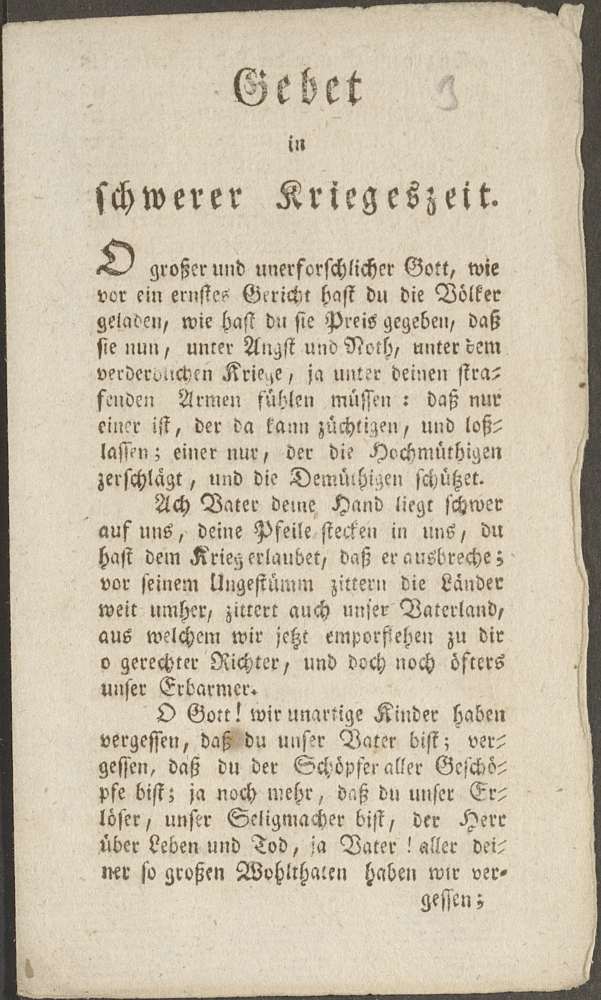 Gebet
9
in
schwerer Kriegeszeit.
O großer und unerforschlicher Gott, wie
vor ein ernstes Gericht hast du die Völker
geladen, wie hast du sie Preis gegeben, daß
sie nun, unter Angst und Noth, unter dem
verderblichen Kriege, ja unter deinen stra-
fenden Armen fühlen müssen: daß nur
einer ist, der da kann züchtigen, und loß-
lassen; einer nur, der die Hochmüthigen
zerschlägt, und die Demüthigen schützet.
Ach Vater deine Hand liegt schwer
auf uns, deine Pfeile stecken in uns, du
hast dem Krieg erlaubet, daß er ausbreche;
vor seinem Ungestümm zittern die Länder
weit umher, zittert auch unser Vaterland,
aus welchem wir jetzt emporflehen zu dir
o gerechter Richter, und doch noch öfters
unser Erbarmer.
O Gott! wir unartige Kinder haben
vergessen, daß du unser Vater bist; ver-
gessen, daß du der Schöpfer aller Geschö-
pfe bist; ja noch mehr, daß du unser Er-
löser, unser Seligmacher bist, der Herr
über Leben und Tod, ja Vater! aller dei-
ner so großen Wohlthaten haben wir ver-
gessen;